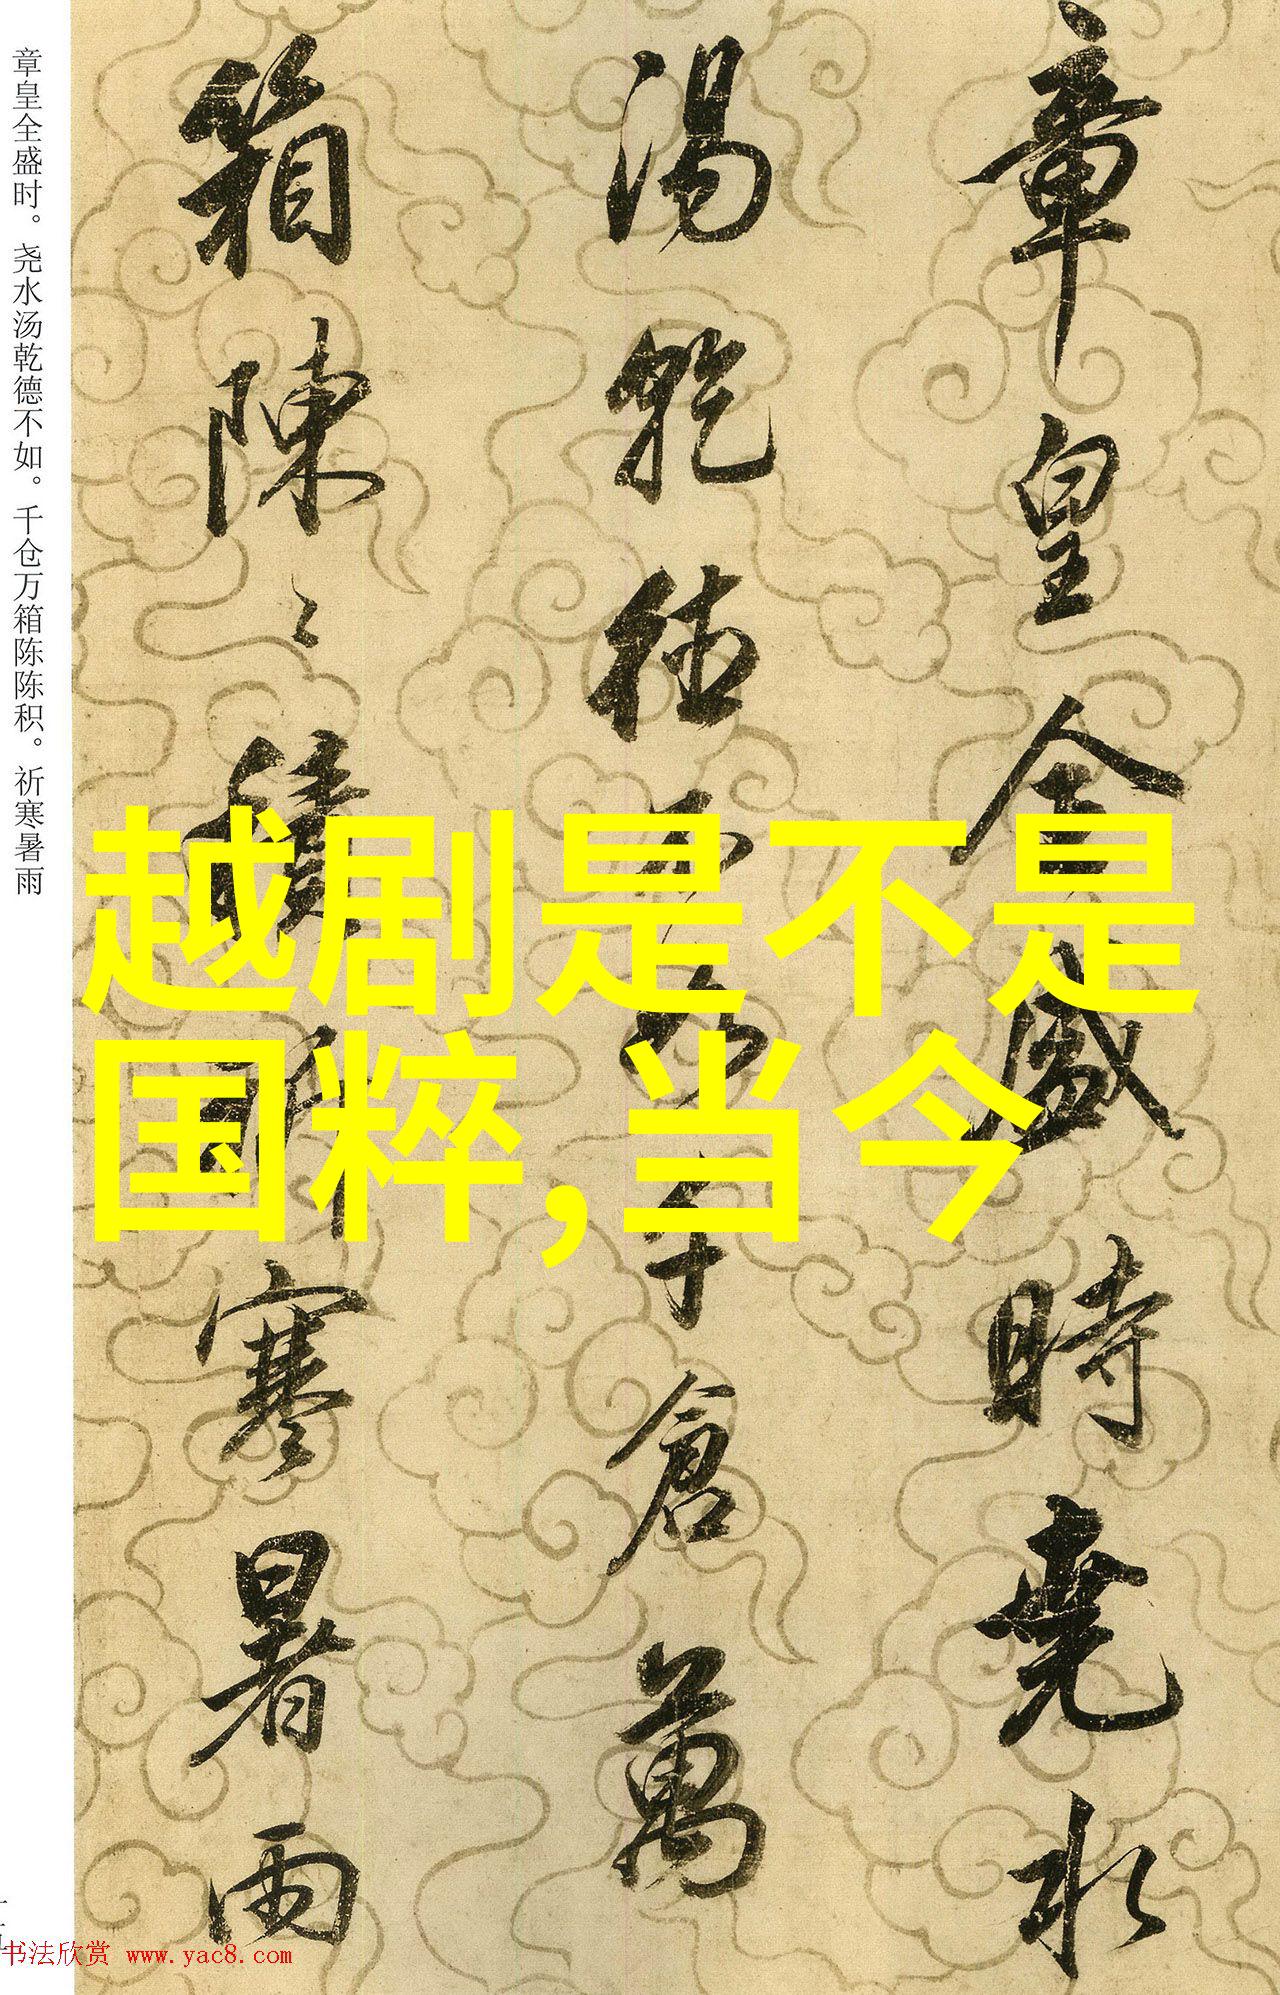 章皇全盛時堯水
湯乾德不如千倉萬
箱陳〻積祈寒暑雨
章皇全盛时。尧水汤乾德不如。千仓万箱陈陈积。祈寒暑雨
越剧是不是
国粹,当今
书法欣赏 www.yac8.com